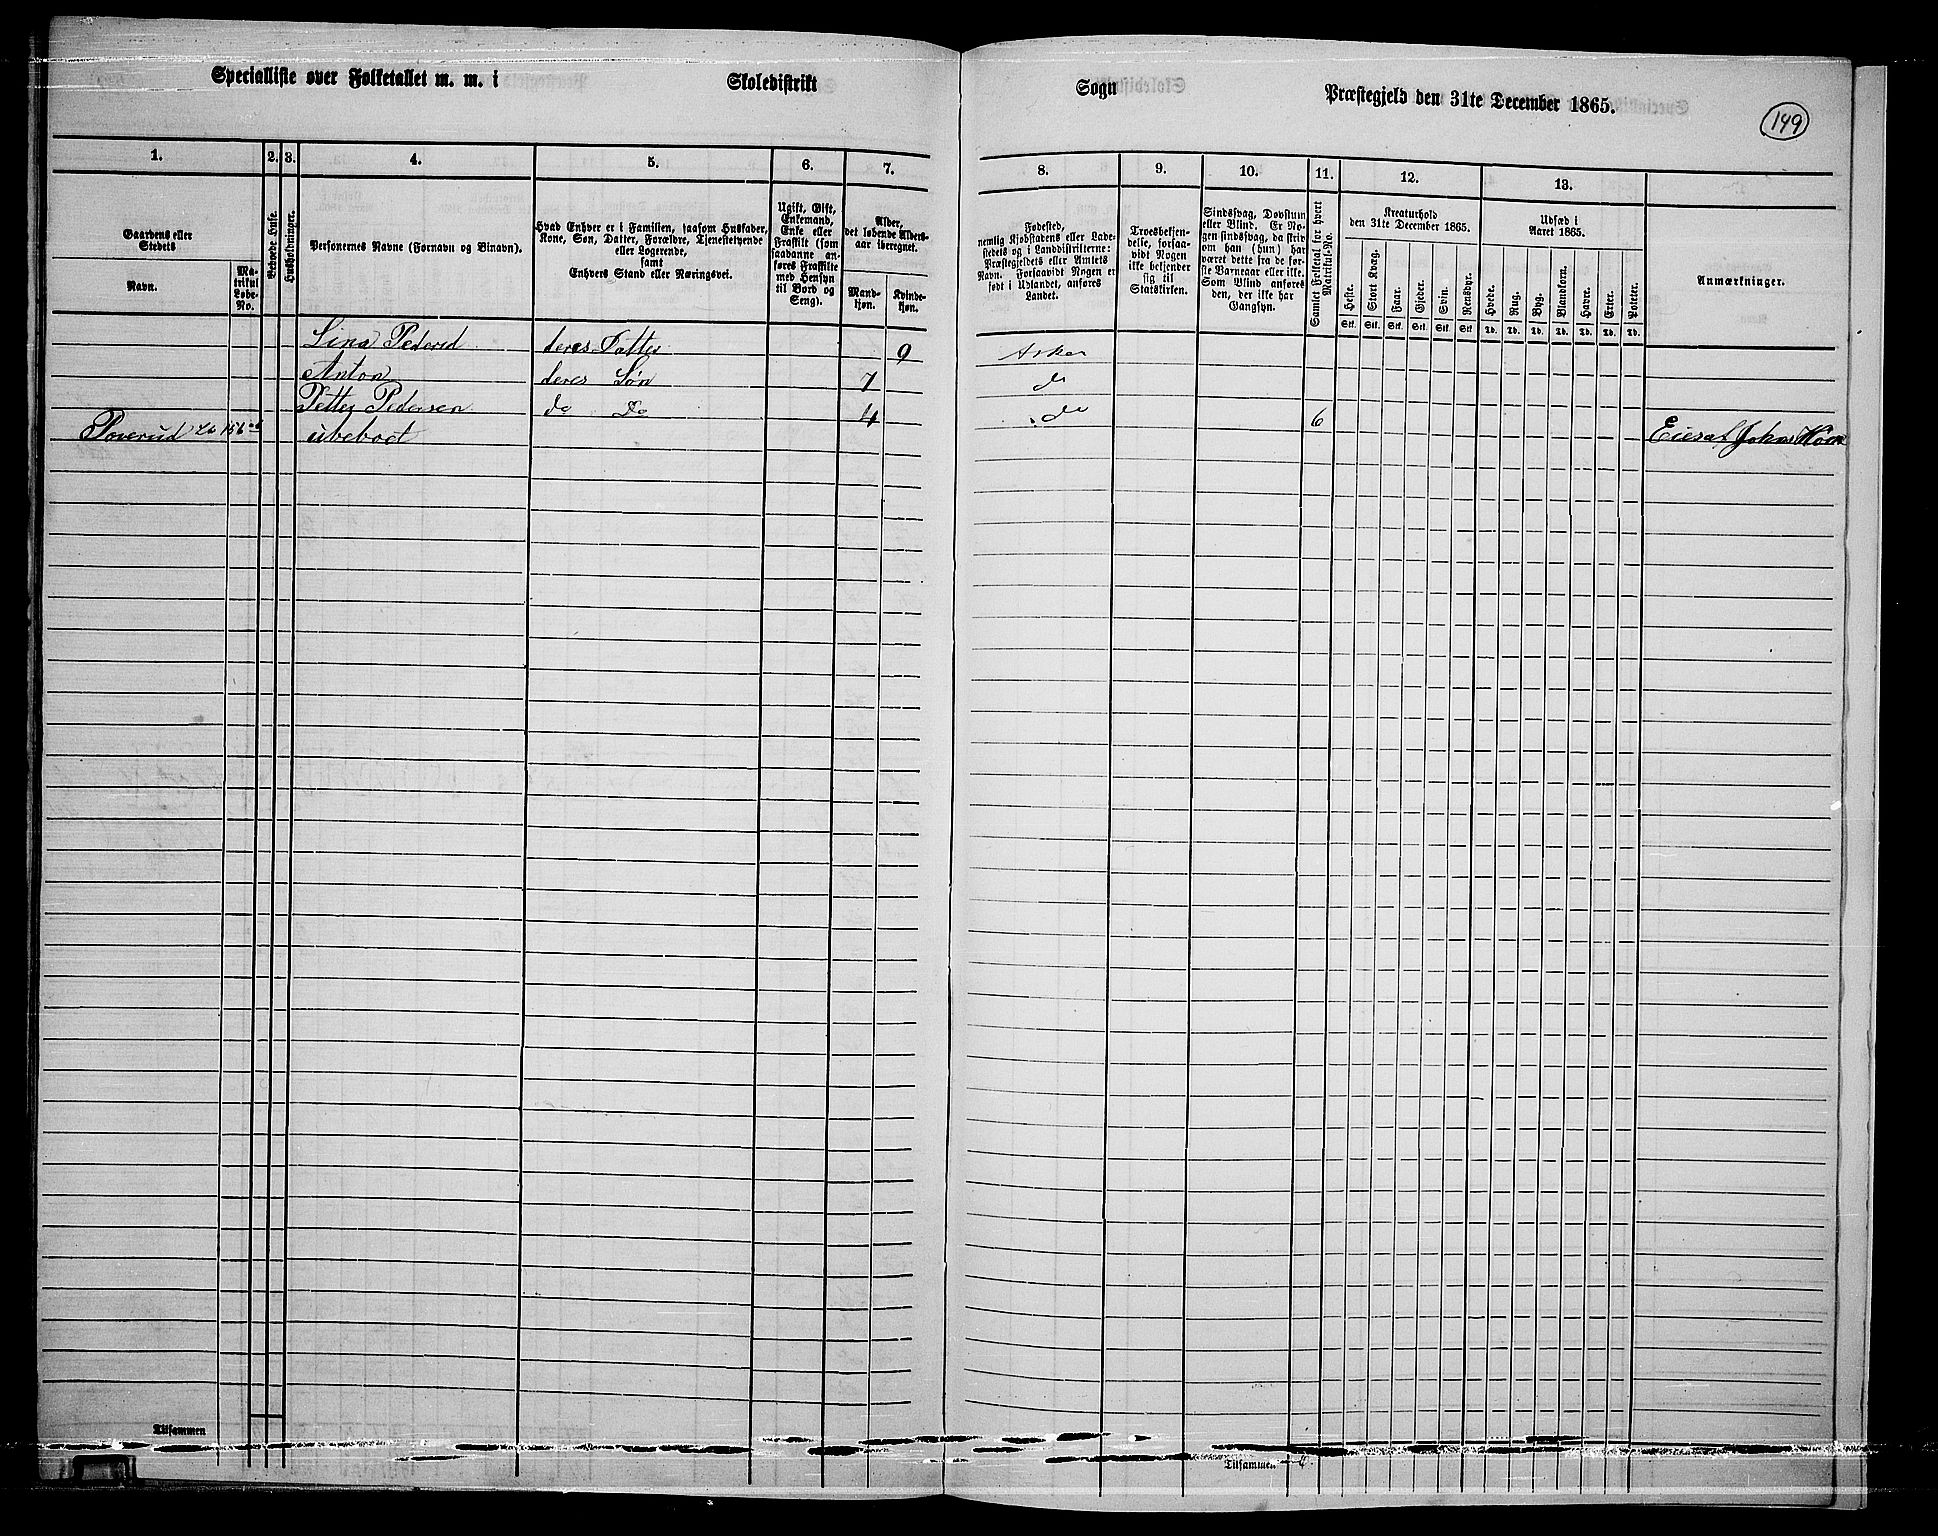 Specialliste over Folketallet m. m. i Skoledistrikt Sogn Præstegjeld den 31te December 1865.
149
1. 2. 3. 4. 5. 6. 7. 8. 9. 10. 11. 12. 13.
Gaardens eller
Stedets
Navn.
Ma-
trikul
Løbe-
No.
Beboede Huse.
Husholdninger.
Personernes Navne (Fornavn og Binavn).
Hvad Enhver er i Familien, saasom Husfader,
Kone, Søn, Datter, Forældre, Tjenestetyende
eller Logerende,
samt
Enhvers Stand eller Næringsvei.
Ugift, Gift,
Enkemand,
Enke eller
Fraskilt (som
saadanne an-
føres Fraskilte
med Hensyn
til Bord og
Seng).
Alder,
det løbende Alders-
aar iberegnet.
Mand-
kjøn.
Kvinde-
kjøn.
Fødested,
nemlig Kjøbstadens eller Lade-
stedets og i Landdistrikterne:
Præstegjeldets eller Amtets
Navn. Forsaavidt Nogen er
født i Udlandet, anføres
Landet.
Troesbekjen-
delse, forsaa-
vidt Nogen
ikke bekjender
sig til
Statskirken.
Sindssvag, Døvstum
eller Blind. Er No-
gen sindssvag, da skriv
om han (hun) har
været dette fra de før-
ste Barneaar eller ikke.
Som Blind anføres
den, der ikke har
Gangsyn.
Samlet Folketal for hvert
Matrikul-No.
Kreaturhold
den 31te December 1865.
Heste.
Stort Kvæg.
Faar.
Gjeder.
Svin.
Rensdyr.
Stk. Stk. Stk. Stk. Stk. Stk.
Udsæd i
Aaret 1865.
Hvede.
Rug.
Byg.
Blandkorn.
Havre.
Erter.
Poteter.
Td. Td. Td. Td. Td. Td. Td.
Anmærkninger.
Lina Pedersd deres Datter 9 Asker
Anton deres Søn 7 do
Petter Pedersen do Do 4 do 6
Poverud ubeboet Eies af Johns
Tilsammen
Tilsammen